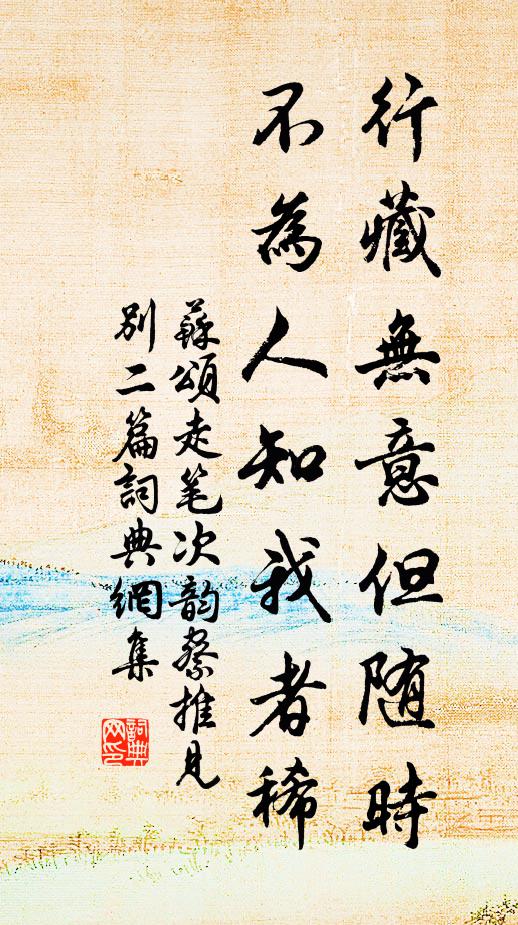 行藏無意但随時
不為人知我者稀
蘇頌走笔次韵蔡推見
别二篇詞典網集
詞典网印